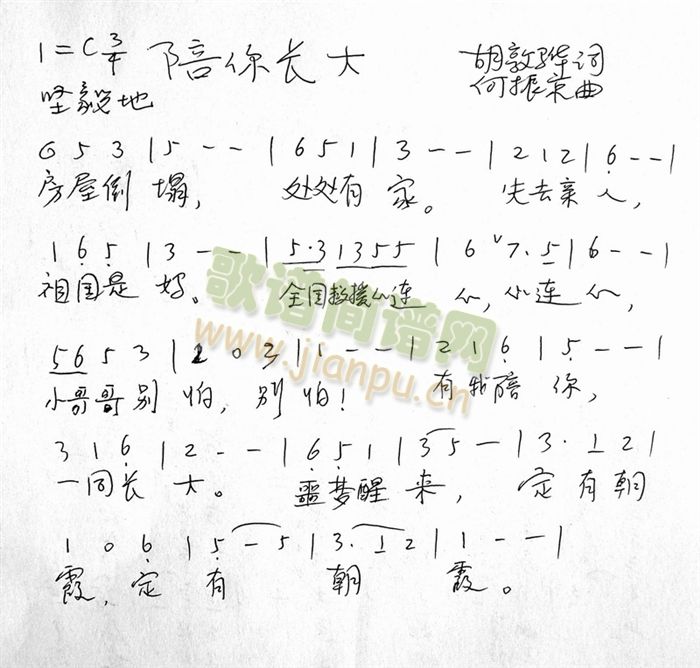 1=C 3/4 陪你长大 胡敦骅词
坚毅地 何振京曲
6 5 3 | 5 - - | 6 5 1 | 3 - - | 2 1 2 | 6 - - |
房屋倒塌， 处处有家。 失去亲人，
1 6 5 | 3 - - | 5·3 1355 | 6 ˅7·5 | 6 - - |
祖国是妈。 全国救援心连心，心连心，
歌谱简谱网
www.jianpu.cn
56 5 3 | 2 0 3 | 1 - - | 2 1 6 | 5 - - |
小哥哥别怕，别怕！ 有我陪你，
3 1 6 | 2 - - | 6 5 1 | 3 5 - | 3·1 2 |
一同长大。 噩梦醒来，定有朝
1 0 6 | 5 - 5 | 3·1 2 | 1 - - |
霞，定有朝霞。